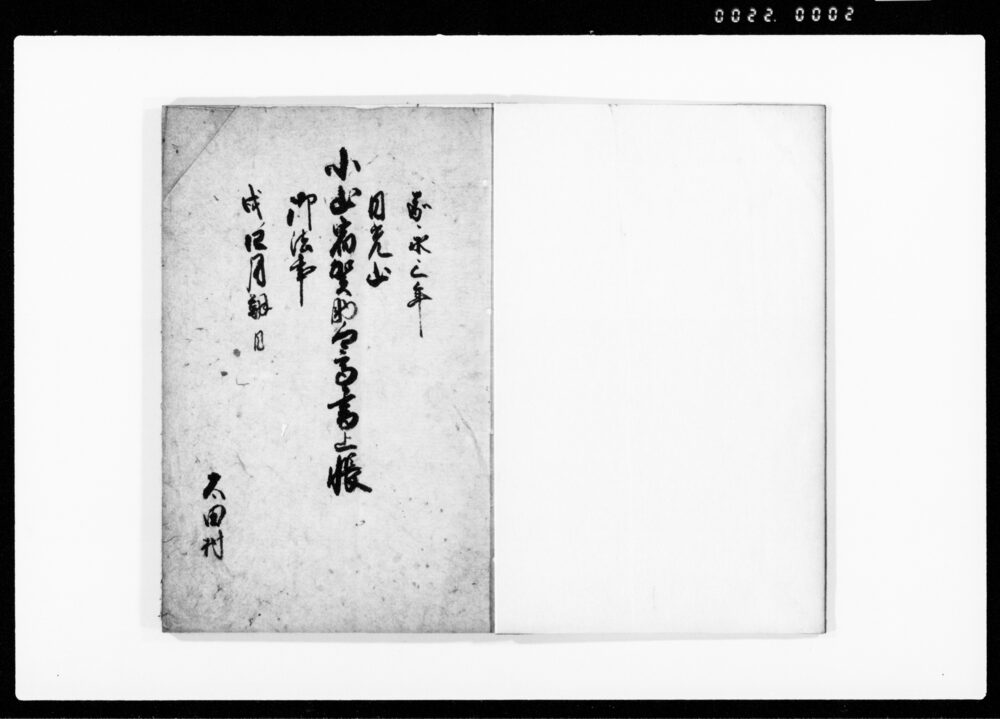 0022. 0002
嘉永三年
日光山
小山宿加助郷高書上帳
御法事
戌四月朔日
太田村